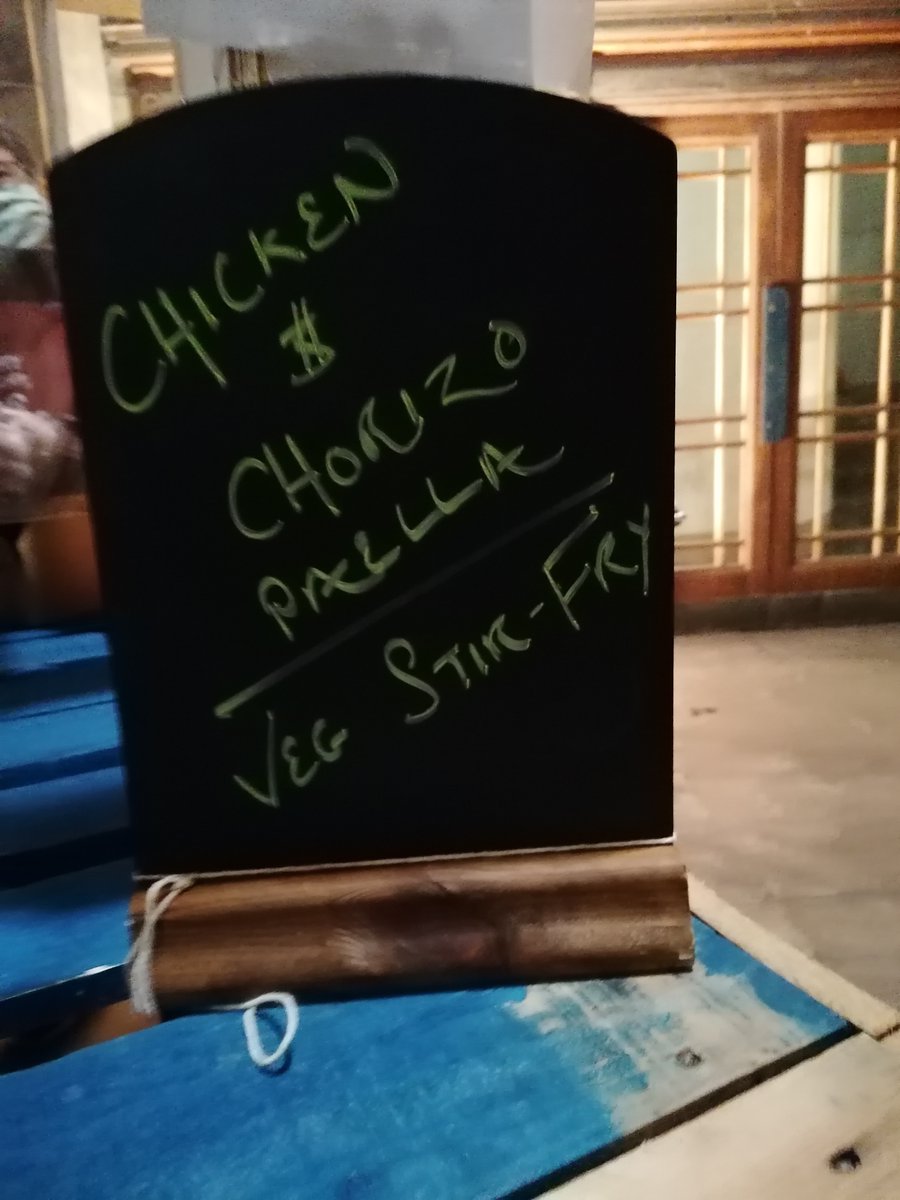 CHICKEN
&
CHORIZO
PAELLA
VEG STIR-FRY